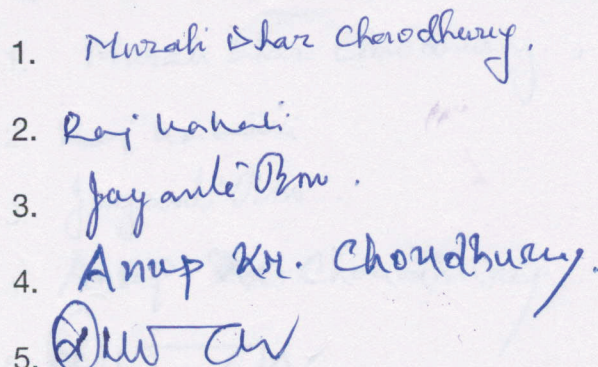 1. Murali Dhar Choudhury.
2. Raj Kakati
3. Jayanti
4. Anup Kr. Choudhury.
5.